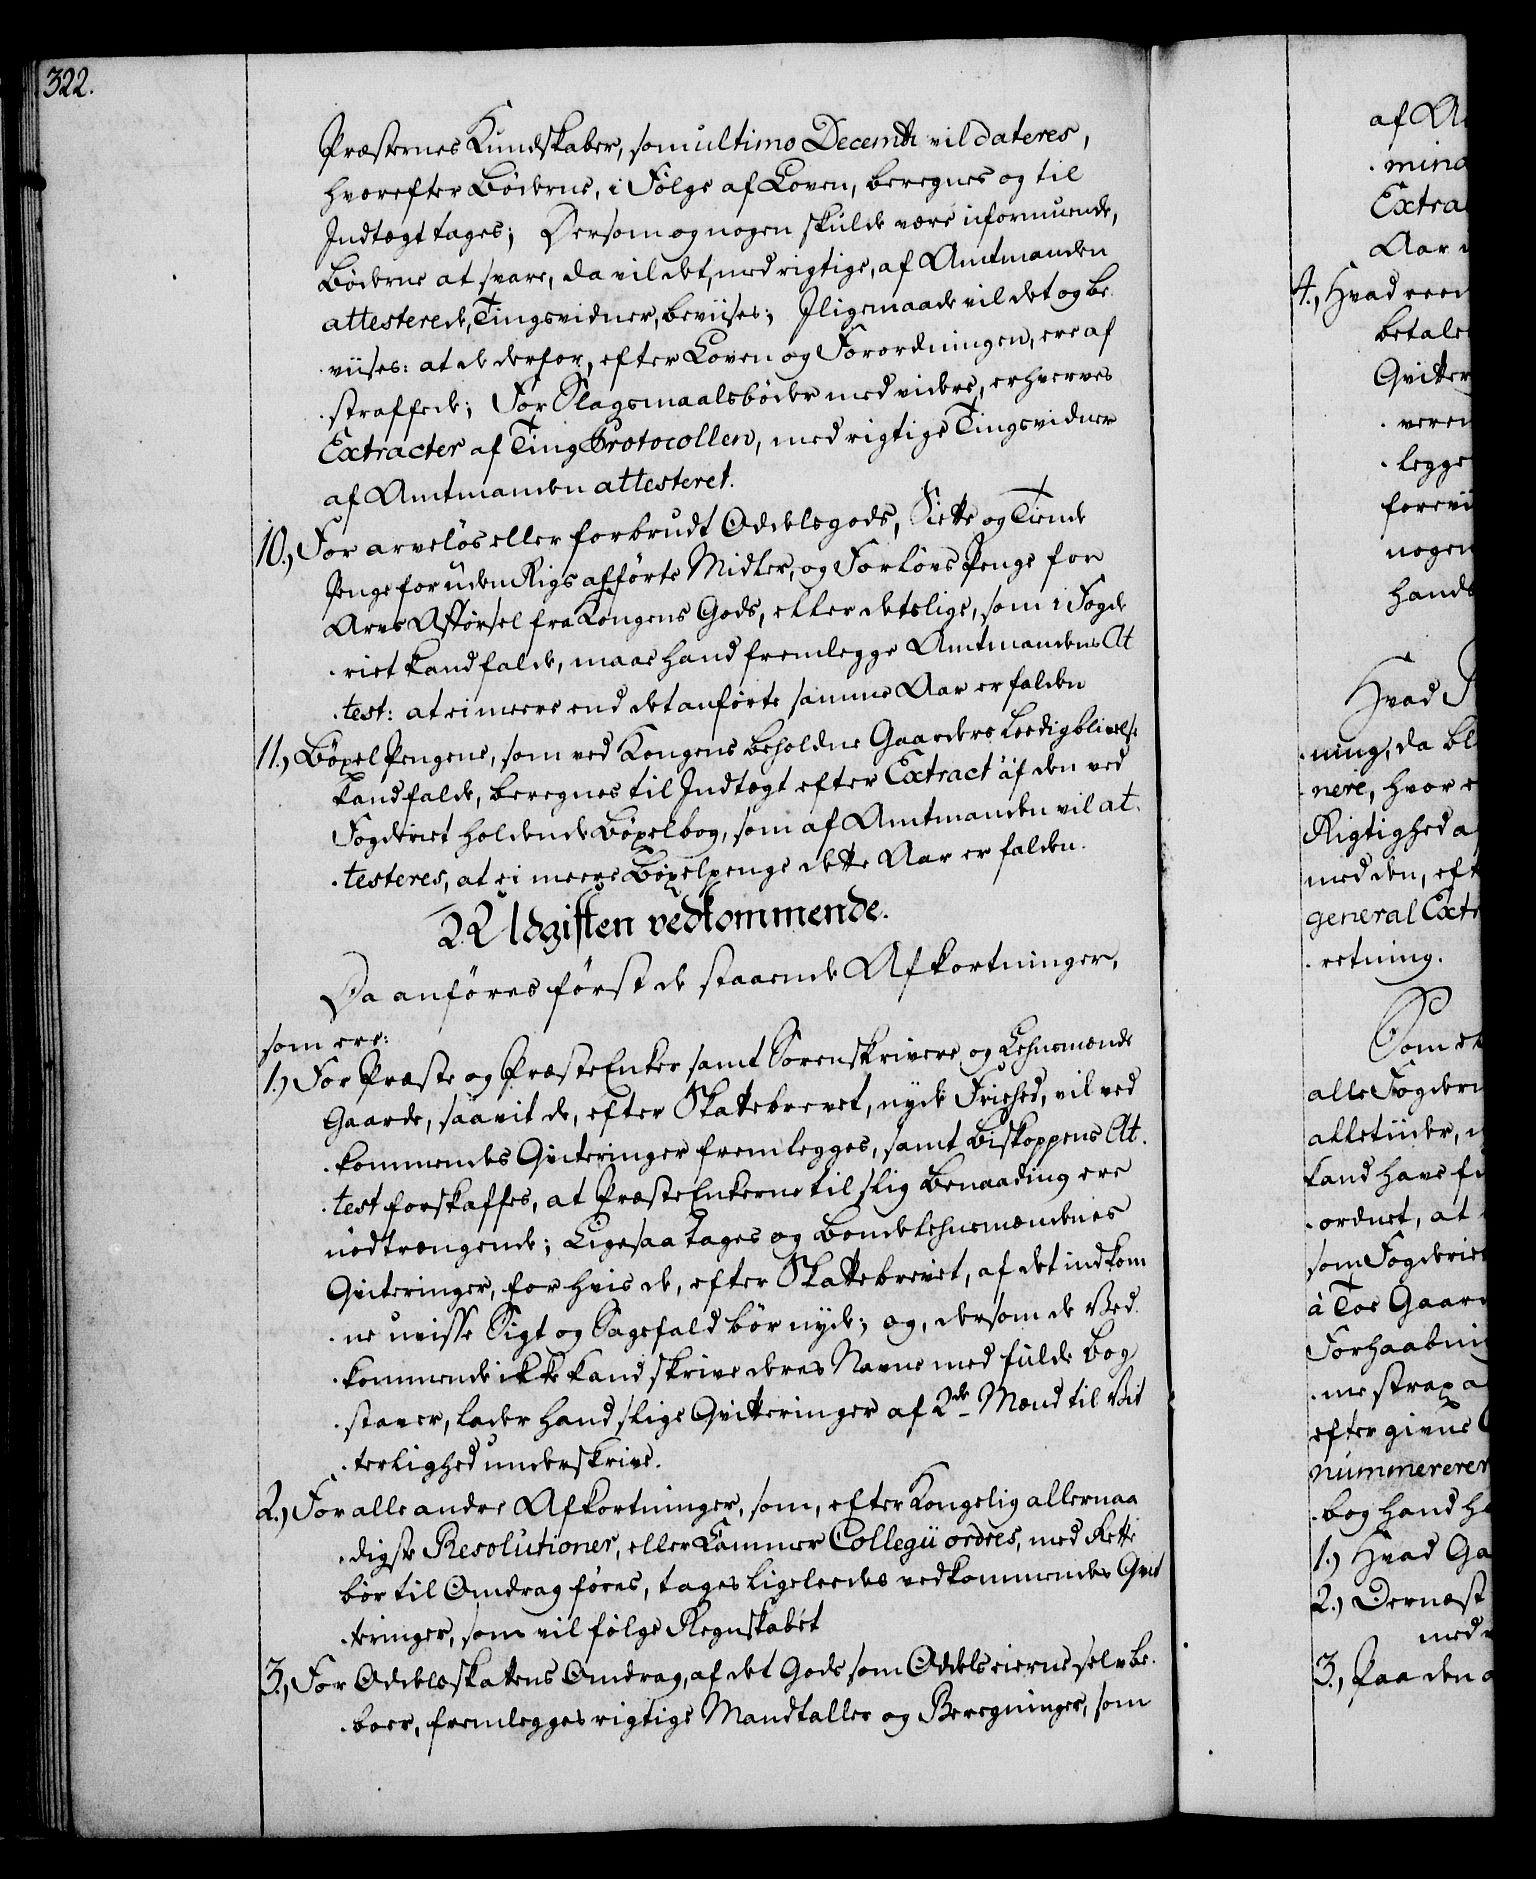 322.
Præsternes Kundskaber, som ultimo Decembr vil dateres,
hvorefter Bøderne, i Følge af Loven, beregnes og til
Indtægt tages; Dersom og nogen skulde være uformuende,
Bøderne at svare, da vil det, med rigtige, af Amtmanden
attesterede, Tingsvidner, beviises; Iligemaade vil det og be
viises: at de derfor, efter Loven og Forordningen, ere af
straffede; For Slagsmaalsbøder med videre, erhverves
Extracter af Ting Protocollen, med rigtige Tingsvidner
af Amtmanden attesteret.
10.) For arveløs eller forbrudt Oddelsgods, Siette og Tiende
Penge for uden Rigs afførte Midler, og Forlovs Penge for
Arve Afførsel fra Kongens Gods, eller deslige, som i Fogde
riet kand falde, maae hand fremlegge Amtmandens At
test: at ei meere end det anførte samme Aar er falden
11.) Bøxel Pengene, som ved Kongens beholdne Gaarders Leedigblivelse
kand falde, beregnes til Indtægt efter Extract af den ved
Fogderiet holdende Bøxelbog, som af Amtmanden vil at
testeres, at ei meere Bøxelpenge dette Aar er falden.
2. Udgiften vedkommende.
Da anføres først de staaende Afkortninger,
som ere:
1.) For Præste og Præste Enker samt Sorenskrivere og Lehnsmænds
Gaarde, saavit de, efter Skattebrevet, nyde Friehed, vil ved
kommendes Qviteringer fremlegges, samt Biskoppens At
test forskaffes, at Præste Enkerne til slig Benaading ere
nødtrængende; Ligesaa tages og Bondelehnsmændenes
Qviteringer, for hvis de, efter Skattebrevet, af det indkom
ne uvisse Sigt og Sagefald bør nyde; og, dersom de Ved
kommende ikke kand skrive deres Navne med fulde Bog
staver, lader hand slige Qvitteringer af 2de Mænd til Vit
terlighed underskrive.
2.) For alle andre Afkortninger, som, efter Kongelig allernaa
digste Resolutioner, eller Cammer Collegii ordres, med Rette
bør til Omdrag føres, tages ligeleedes vedkommendes Qvit
teringer, som vil følge Regnskabet
3.) For Oddelsskattens Omdrag, af det Gods som Oddelseierne selv be
boer, fremlegges rigtige Mandtaller og Beregninger, som
af A
mind
Extra
Aar
4.) Hvad
betale
Qvitter
veren
legge
forevi
nogen
hands
Hvad
ning, da bl
nere, hvor
Rigtighed a
med den, eft
general Extr
retning.
Som
alle Fogder
alletiider,
kand have
ordnet, at
som Fogderie
à Toe Gaar
Forhaabni
me strax a
efter givne
nummererer
bog hand h
1.) Hvad Ga
2.) Dernæst
med
3.) Paa den